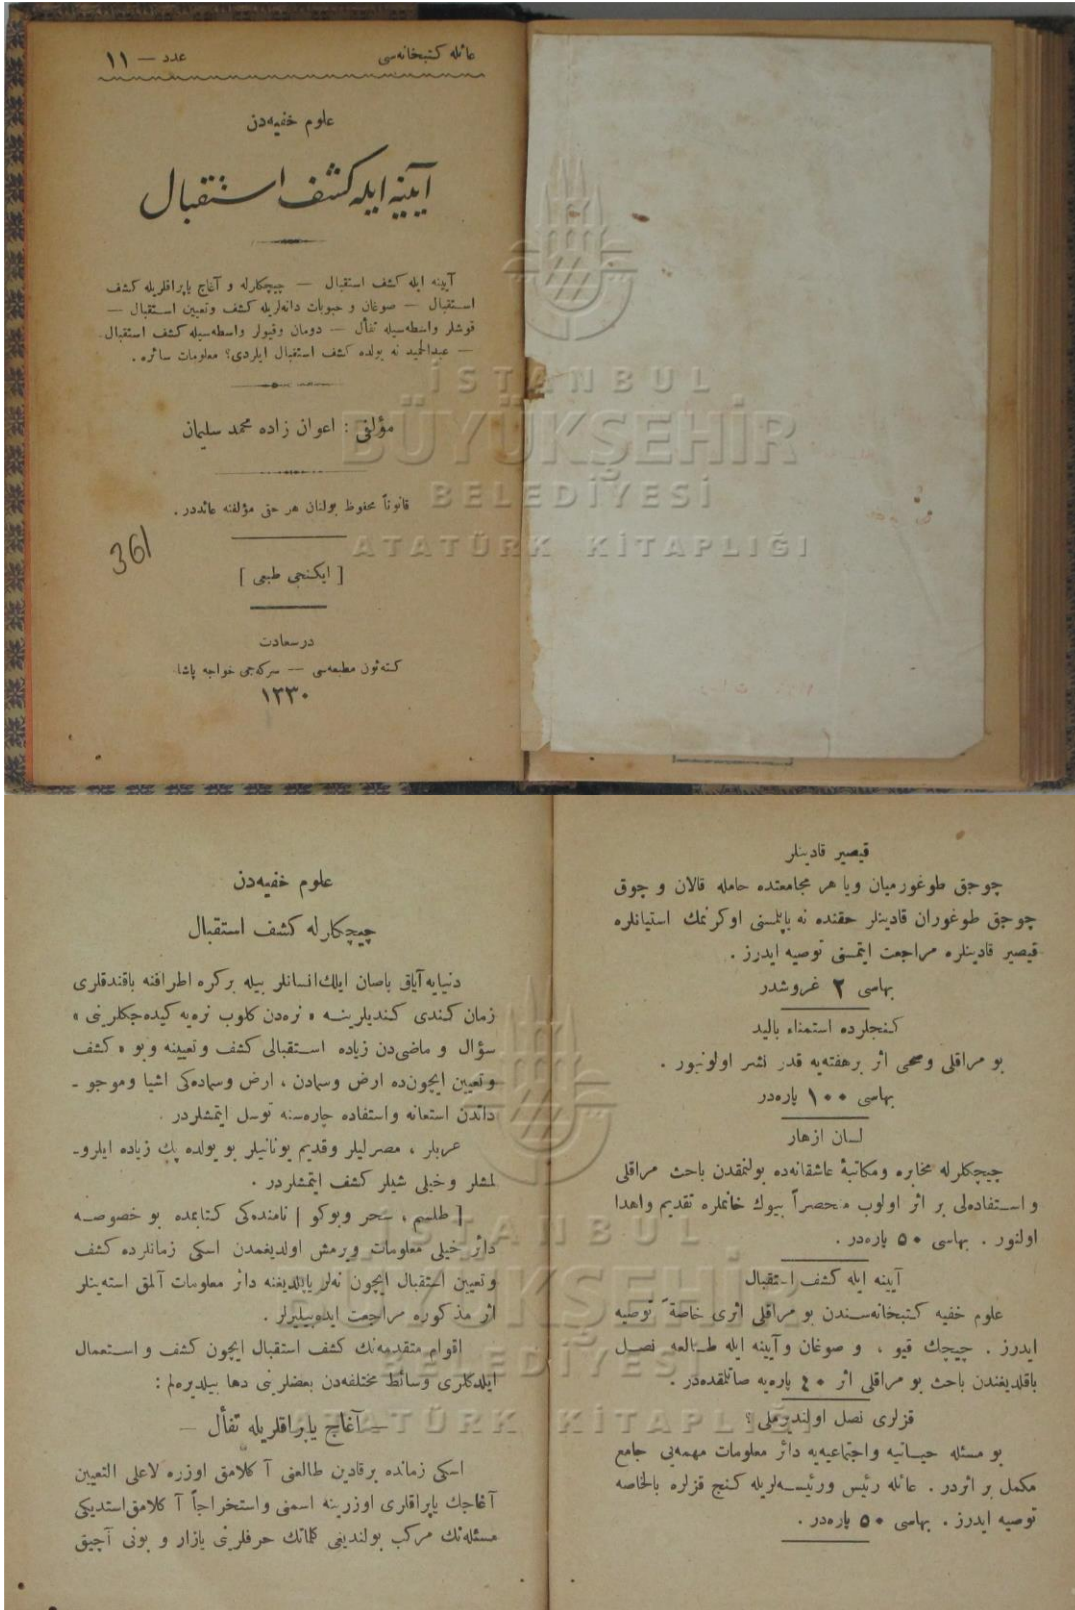 عائله كتبخانه‌سی
عدد — ١١
علوم خفیه‌دن
آیینه ایله كشف استقبال
آیینه ایله كشف استقبال — چیچكلرله و آغاج یاپراقلریله كشف
استقبال — صوغان و حبوبات دانه‌لریله كشف وتعیین استقبال —
قوشلر واسطه‌سیله تفأل — دومان وقیولر واسطه‌سیله كشف استقبال.
— عبدالحمید نه یولده كشف استقبال ایلردی؟ معلومات سائره .
مؤلفی : اعوان زاده محمد سلیمان
قانوناً محفوظ بولنان هر حق مؤلفنه عائددر .
361
[ ایكنجی طبعی ]
درسعادت
كته‌ئون مطبعه‌سی — سركه‌جی خواجه پاشا
١٣٣٠
قیصیر قادینلر
چوجق طوغورمیان ویا هر مجامعتده حامله قالان و چوق
چوجق طوغوران قادینلر حقنده نه یاپلمسنی اوكرنمك استیانلره
قیصیر قادینلره مراجعت ایتمسنی توصیه ایدرز .
بهاسی ٢ غروشدر
كنجلرده استمناء بالید
بو مراقلی وصحی اثر برهفته‌یه قدر نشر اولونیور .
بهاسی ١٠٠ پاره‌در
لسان ازهار
چیچكلرله مخابره ومكاتبهٔ عاشقانه‌ده بولنمقدن باحث مراقلی
واستفاده‌لی بر اثر اولوب منحصراً بیوك خانملره تقدیم واهدا
اولنور . بهاسی ٥٠ پاره‌در .
آیینه ایله كشف استقبال
علوم خفیه كتبخانه‌سندن بو مراقلی اثری خاصةً توصیه
ایدرز . چیچك قیو ، و صوغان وآیینه ایله طالعه نصل
باقلدیغندن باحث بو مراقلی اثر ٤٠ پاره‌یه صاتلمقده‌در .
قزلری نصل اولندیرملی؟
بو مسئله حیاتیه واجتماعیه‌یه دائر معلومات مهمه‌یی جامع
مكمل بر اثردر . عائله رئیس ورئیسه‌لریله كنج قزلره بالخاصه
توصیه ایدرز . بهاسی ٥٠ پاره‌در .
علوم خفیه‌دن
چیچكلرله كشف استقبال
دنیایه آیاق باصان ایلك انسانلر بیله بركره اطرافنه باقندقلری
زمان كندی كندیلرینه « نره‌دن كلوب نره‌یه كیده‌جكلرینی »
سؤال و ماضی‌دن زیاده استقبالی كشف وتعیینه وبو « كشف
وتعیین ایچون‌ده ارض وسمادن ، ارض وسماده‌كی اشیا وموجو -
داتدن استعانه واستفاده چاره‌سنه توسل ایتمشلردر .
عربلر ، مصرلیلر وقدیم یونانیلر بو یولده پك زیاده ایلرو-
لمشلر وخیلی شیلر كشف ایتمشلردر .
[ طلسم ، سحر وبوكو ] نامنده‌كی كتابمده بو خصوصه
دائر خیلی معلومات ویرمش اولدیغمدن اسكی زمانلرده كشف
وتعیین استقبال ایچون نه‌لر یاپلدیغنه دائر معلومات آلمق استه‌ینلر
اثر مذكوره مراجعت ایده‌بیلیرلر .
اقوام متقدمه‌نك كشف استقبال ایچون كشف واستعمال
ایلدكلری وسائط مختلفه‌دن بعضلرینی دها بیلدیره‌لم :
— آغاج یاپراقلریله تفأل —
اسكی زمانده برقادین طالعنی آكلامق اوزره لاعلی التعیین
آغاجك یاپراقلری اوزرینه اسمنی واستخراجاً آكلامق استدیكی
مسئله‌نك مركب بولندیغی كلماتك حرفلرینی یازار و بونی آچیق
İSTANBUL
BÜYÜKŞEHİR
BELEDİYESİ
ATATÜRK KİTAPLIĞI
İSTANBUL
BÜYÜKŞEHİR
BELEDİYESİ
ATATÜRK KİTAPLIĞI